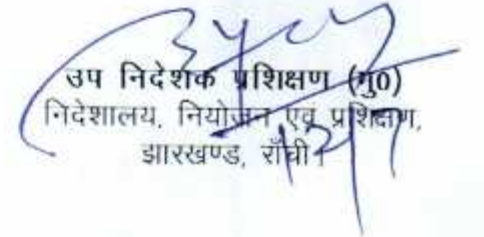 उप निदेशक प्रशिक्षण (मु0)
निदेशालय, नियोजन एवं प्रशिक्षण,
झारखण्ड, राँची।
12/7